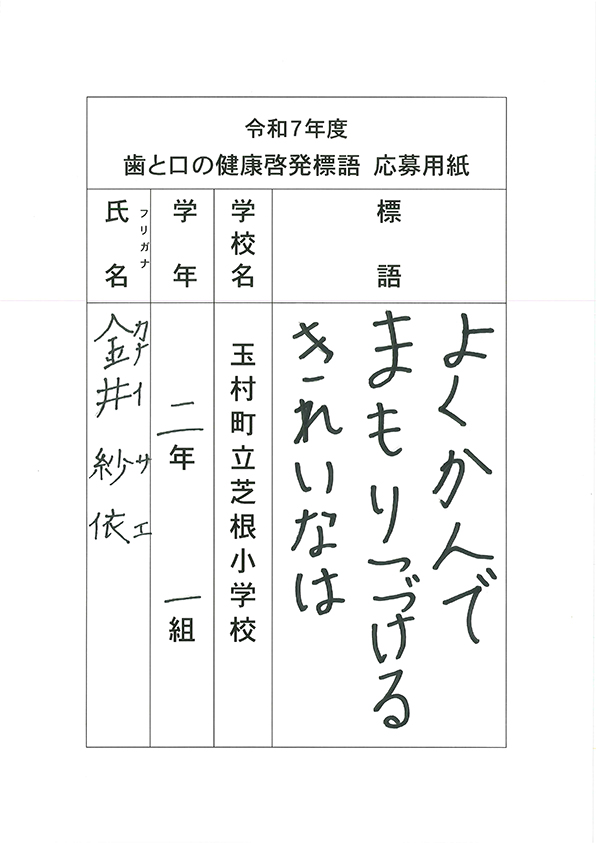 令和7年度
歯と口の健康啓発標語 応募用紙
標語
よくかんで
まもりつづける
きれいなは
学校名
玉村町立芝根小学校
学年
二年 一組
氏名
フリガナ
金井 紗依
カナイ サエ